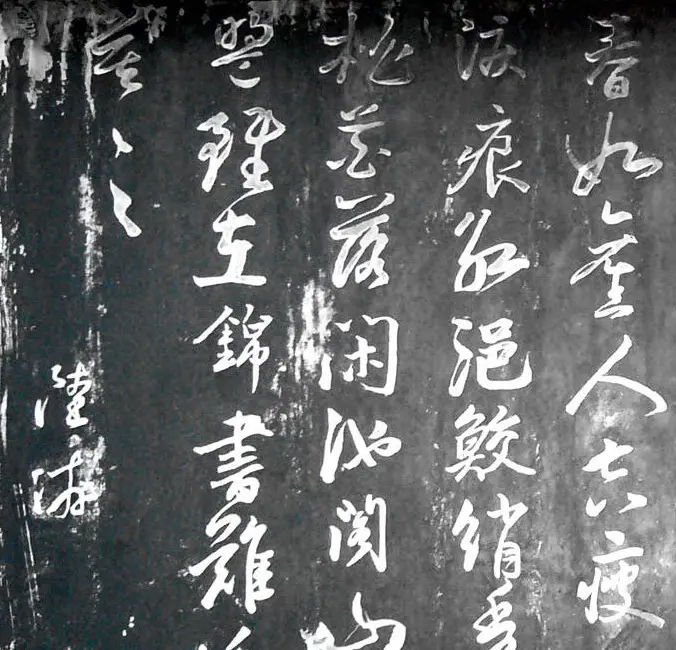 春如舊人空瘦
淚痕紅浥鮫綃透
桃花落閑池閣山
盟雖在錦書難
莫〻〻
陸游